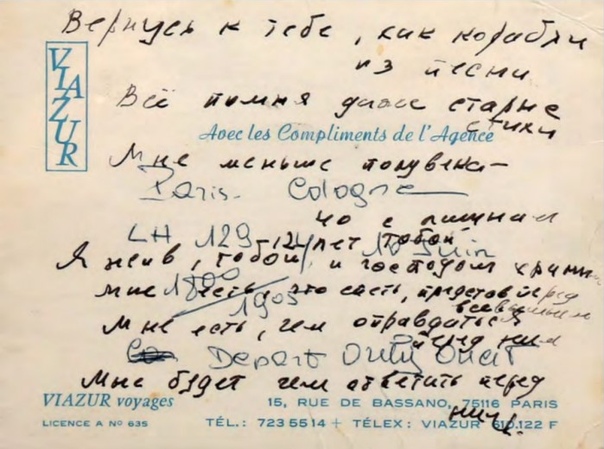 Вернусь к тебе, как корабли
из песни
VIAZUR
Всё помня даже старые
стихи
Avec les Compliments de l'Agence
Мне меньше полувека –
Paris - Cologne
40 с лишним
LH 129 лет тобой
10 Juin
Я жив, тобой и господом храним
1800
мне есть, что спеть, представ перед
1905 всевышним
Мне есть, чем оправдаться
перед ним
Depart Orly Ouest
Мне будет чем ответить перед
ним.
VIAZUR voyages 15, RUE DE BASSANO, 75116 PARIS
LICENCE A Nº 635 TÉL.: 723 55 14 + TÉLEX: VIAZUR 610.122 F